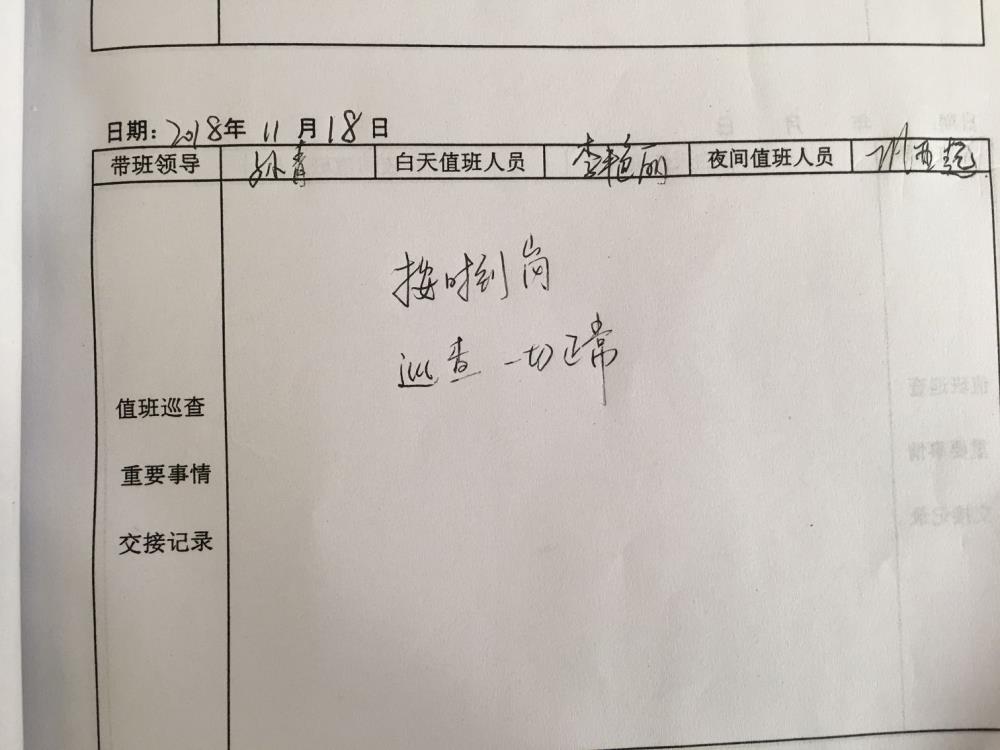 日期：2018年 11 月 18 日
带班领导 孙青 白天值班人员 李艳丽 夜间值班人员
按时到岗
巡查一切正常
值班巡查
重要事情
交接记录